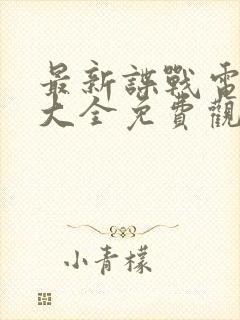 最新諜戰電
大全免費觀
小青檬